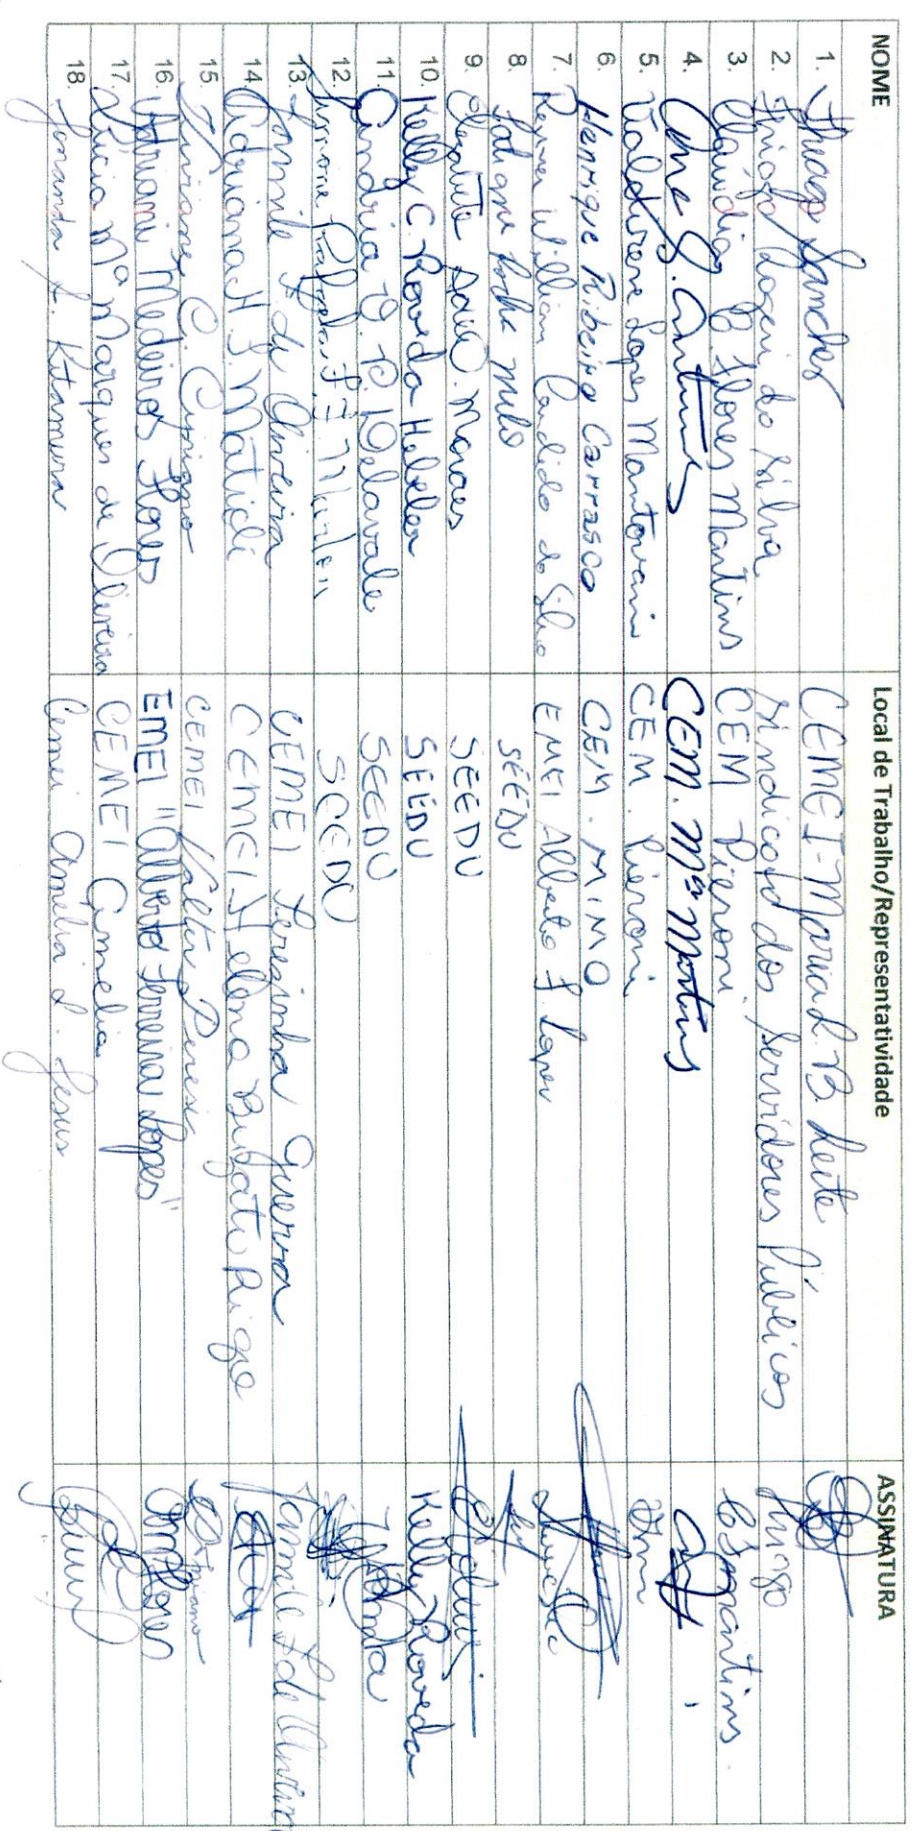 NOME Local de Trabalho/Representatividade ASSINATURA
1. Thiago Sanches CEMEI-Maria L. B. Leite
2. Thiago da Silva Sindicato dos Servidores Públicos Thiago
3. Claudia B. Flores Martins CEM Pieroni CBMartins.
4. Ana G. Antunes CEM. Mª Martins
5. Valdirene Lopes Mantovani CEM. Pieroni
6. Henrique Ribeiro Carrasco CEM. MIMO
7. Renner Willian Candido da Silva EMEI Alberto F. Lopes
8. Rocha Melo SEEDU
9. Elizabete Moraes SEEDU
10. Kelly C. Roveda Hebeler SEEDU Kelly Roveda
11. Andréia Delavale SEEDU
12. SEEDU
13. Jamile F. de Oliveira CEMEI Terezinha Guerra Jamile F de Oliveira
14. Adriana H. S. CEMEI Helena Buzato Rigo
15. C. CEMEI Valter Peresi
16. Adriani Medeiros Flores EMEI "Alberto Ferreira Lopes"
17. Lúcia Mª Marques de Oliveira CEMEI Amelia
18. Fernanda S. Kitamura Cemei Amélia L. Jesus